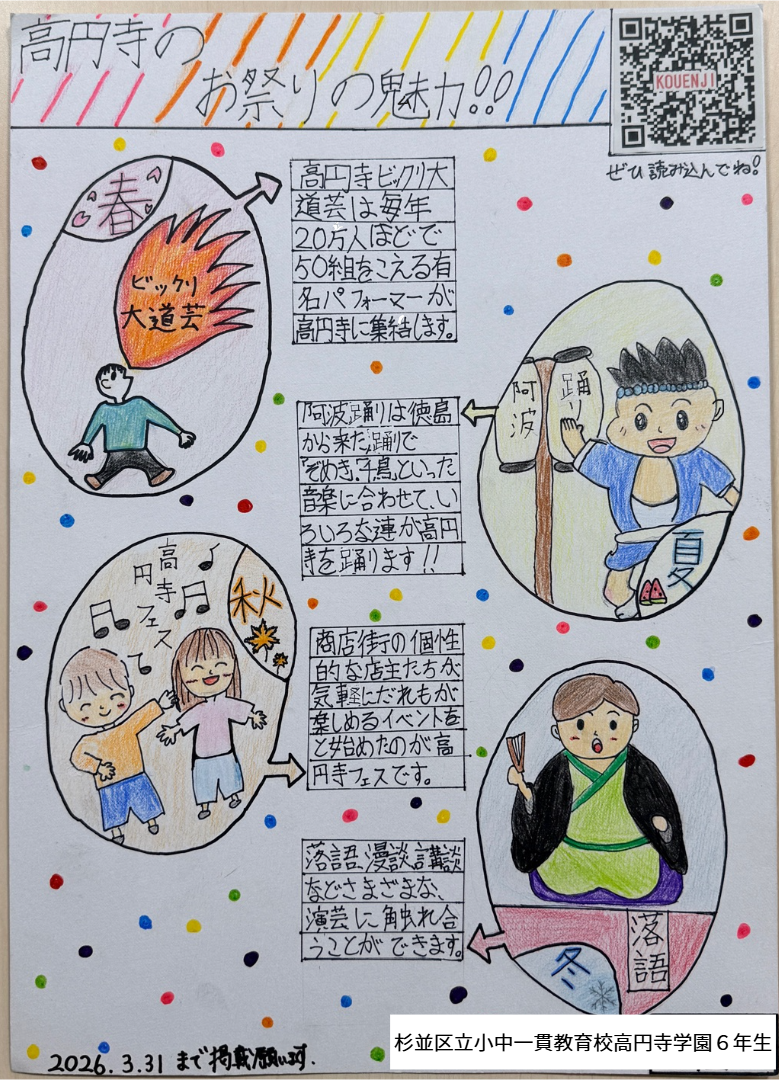 高円寺の
お祭りの魅力!!
KOUENJI
ぜひ読み込んでね!
春
ビックリ
大道芸
高円寺ビックリ大
道芸は毎年
20万人ほどで
50組をこえる有
名パフォーマーが
高円寺に集結します。
阿波
踊り
夏
阿波踊りは徳島
から来た踊りで
「ぞめき」「千鳥」といった
音楽に合わせて、い
ろいろな連が高円
寺を踊ります!!
高円寺フェス
秋
商店街の個性
的な店主たちが
気軽にだれもが
楽しめるイベントを
と始めたのが高
円寺フェスです。
落語、漫談、講談
などさまざまな、
演芸に触れ合
うことができます。
落語
冬
2026.3.31 まで掲載願います.
杉並区立小中一貫教育校高円寺学園6年生